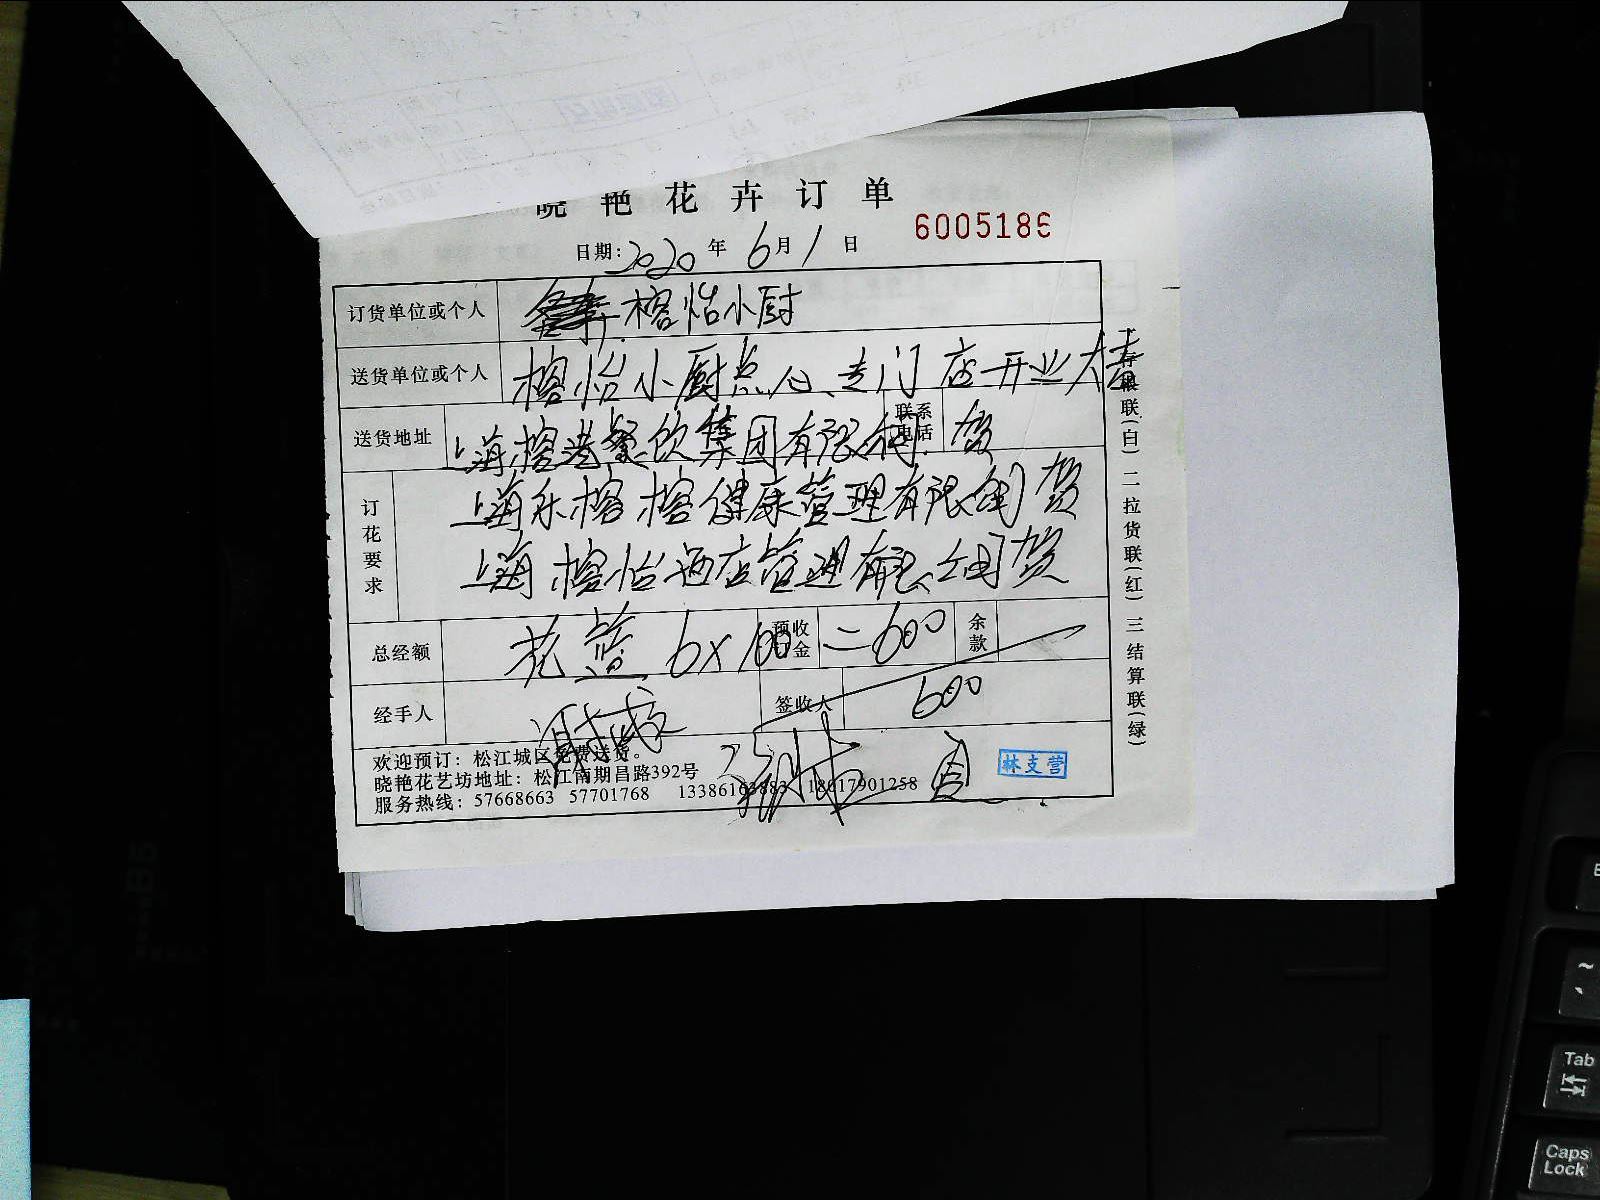 晓艳花卉订单
6005186
日期:2020年6月1日
订货单位或个人 榕怡小厨
送货单位或个人 榕怡小厨点心专门店开业大吉
送货地址 上海榕港餐饮集团有限公司 联系电话 贺
订花要求 上海乐榕榕健康管理有限公司 贺
上海榕怡酒店管理有限公司 贺
总经额 花篮 6×100 预收金 =600 余款
经手人 签收人 600
欢迎预订:松江城区免费送货。
晓艳花艺坊地址:松江南期昌路392号
服务热线:57668663 57701768 13386163883 18617901258
林支营
存根联(白)二拉货联(红)三结算联(绿)
Tab
Caps Lock